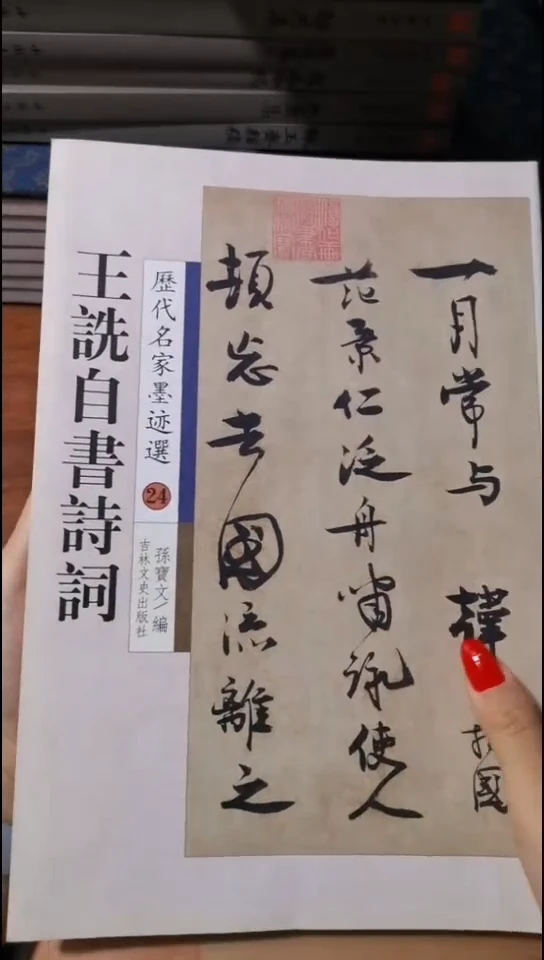 王詵自書詩詞
歷代名家墨迹選
24
孫寶文/編
吉林文史出版社
一月常与 韓 國
范景仁泛舟 詠使人
頓忘去國流離之